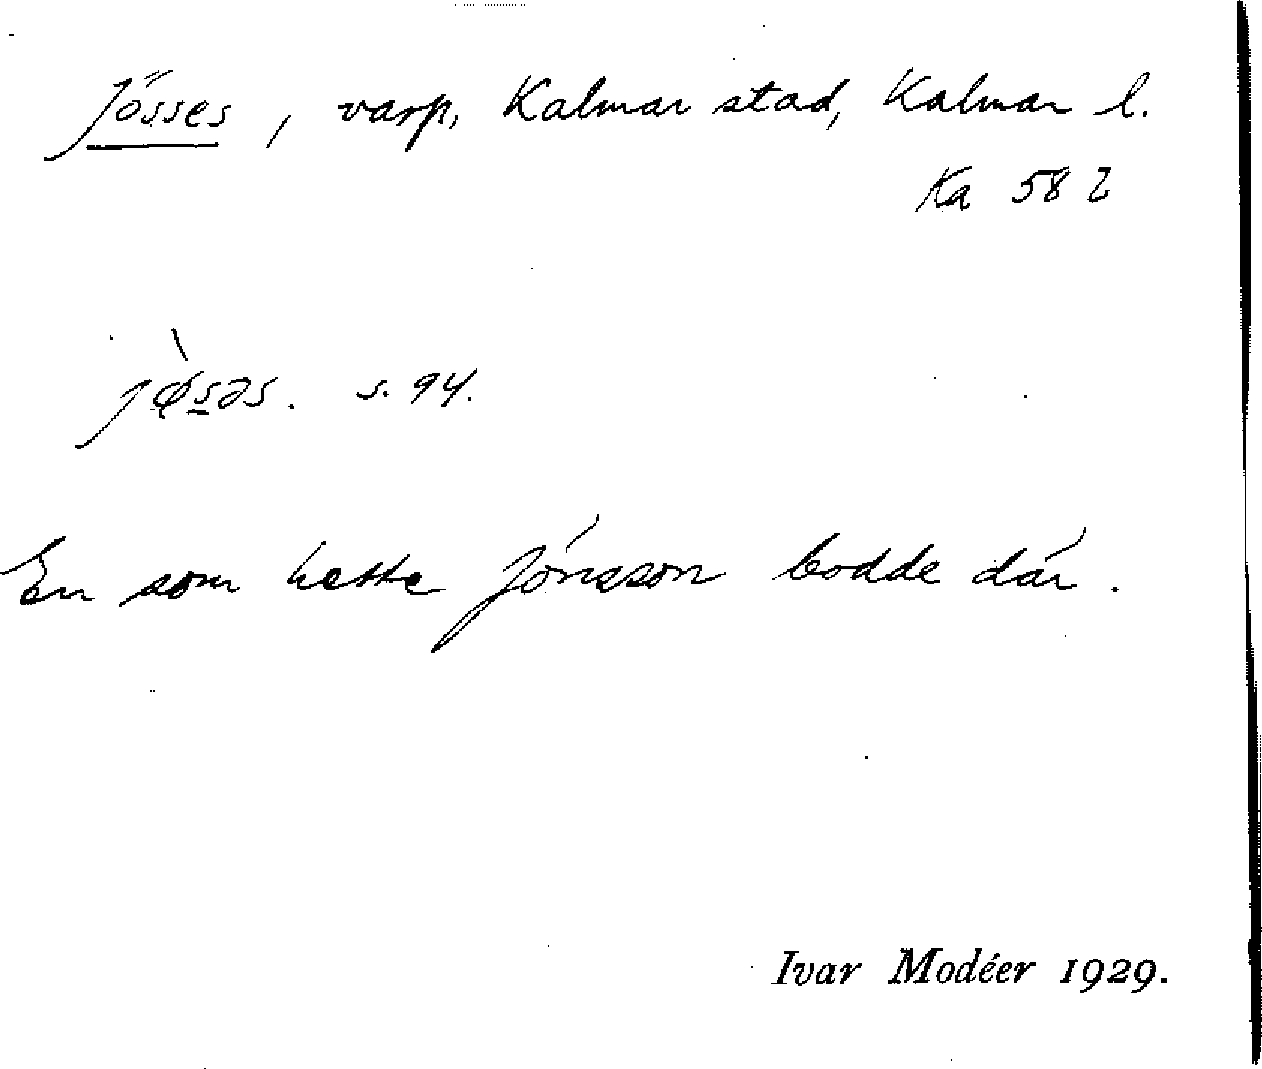 Jösses, varp, Kalmar stad, Kalmar l.
Ka 58 2
jø̀s̲əs. s. 94.
En som hette Jönsson bodde där.
Ivar Modéer 1929.